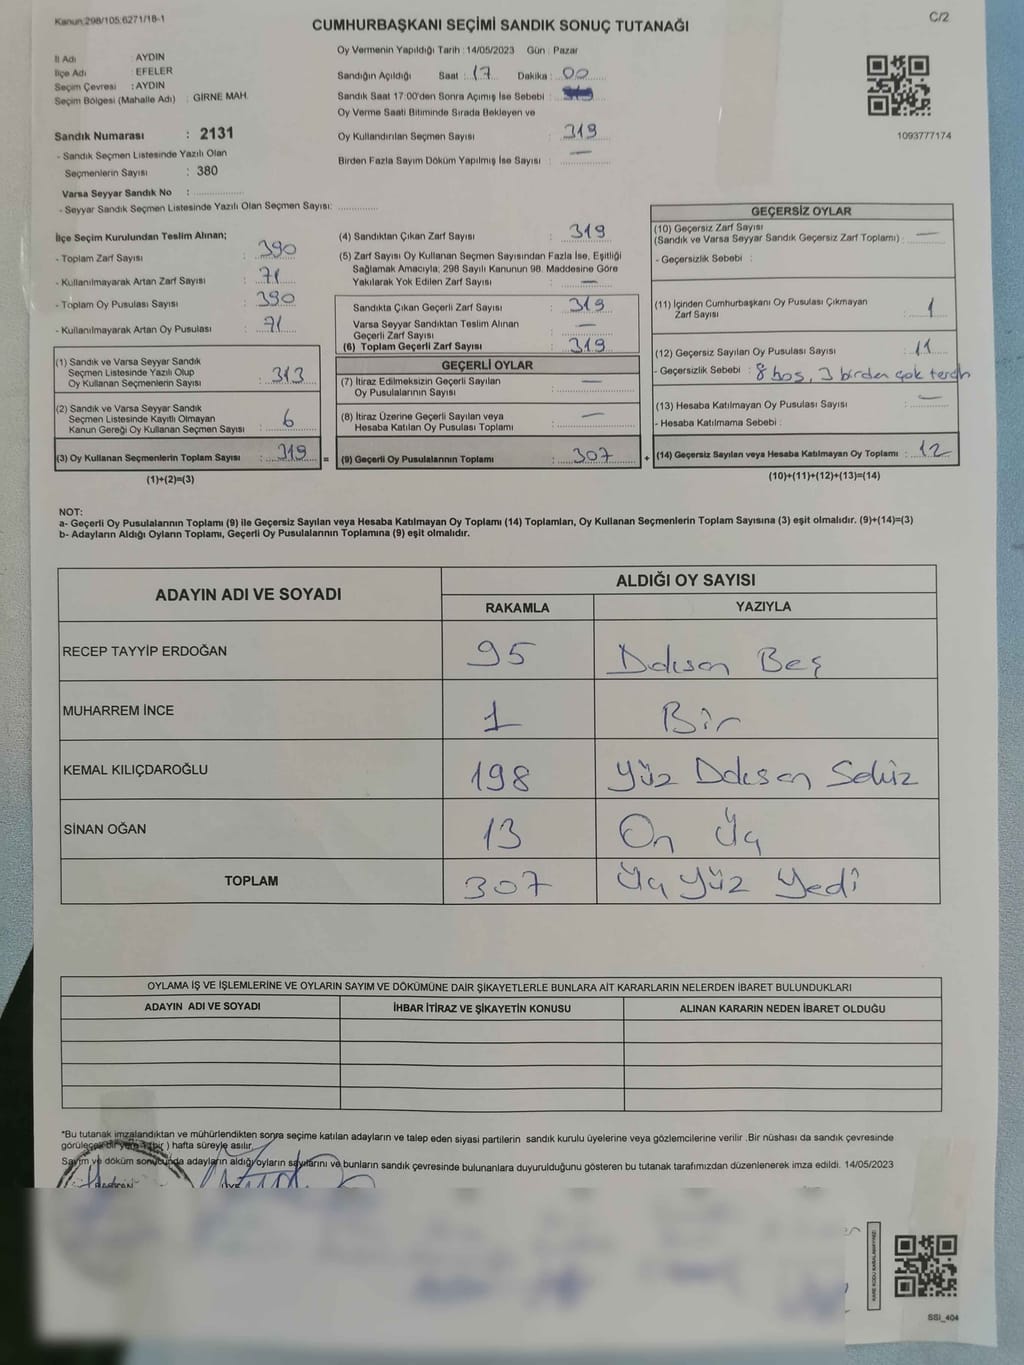 Kanun:298/105;6271/18-1
C/2
CUMHURBAŞKANI SEÇİMİ SANDIK SONUÇ TUTANAĞI
İl Adı : AYDIN
İlçe Adı : EFELER
Seçim Çevresi : AYDIN
Seçim Bölgesi (Mahalle Adı) : GİRNE MAH.
Sandık Numarası : 2131
- Sandık Seçmen Listesinde Yazılı Olan
Seçmenlerin Sayısı : 380
Varsa Seyyar Sandık No : ..............
- Seyyar Sandık Seçmen Listesinde Yazılı Olan Seçmen Sayısı: ..............
Oy Vermenin Yapıldığı Tarih : 14/05/2023 Gün : Pazar
Sandığın Açıldığı Saat : 17 Dakika : 00
Sandık Saat 17:00'den Sonra Açımış İse Sebebi :
Oy Verme Saati Bitiminde Sırada Bekleyen ve
Oy Kullandırılan Seçmen Sayısı : 319
Birden Fazla Sayım Döküm Yapılmış İse Sayısı : —
1093777174
İlçe Seçim Kurulundan Teslim Alınan;
- Toplam Zarf Sayısı : 390
- Kullanılmayarak Artan Zarf Sayısı : 71
- Toplam Oy Pusulası Sayısı : 390
- Kullanılmayarak Artan Oy Pusulası : 71
(1) Sandık ve Varsa Seyyar Sandık
Seçmen Listesinde Yazılı Olup
Oy Kullanan Seçmenlerin Sayısı : 313
(2) Sandık ve Varsa Seyyar Sandık
Seçmen Listesinde Kayıtlı Olmayan
Kanun Gereği Oy Kullanan Seçmen Sayısı : 6
(3) Oy Kullanan Seçmenlerin Toplam Sayısı : 319 =
(1)+(2)=(3)
(4) Sandıktan Çıkan Zarf Sayısı : 319
(5) Zarf Sayısı Oy Kullanan Seçmen Sayısından Fazla İse, Eşitliği
Sağlamak Amacıyla, 298 Sayılı Kanunun 98. Maddesine Göre
Yakılarak Yok Edilen Zarf Sayısı : —
Sandıkta Çıkan Geçerli Zarf Sayısı : 319
Varsa Seyyar Sandıktan Teslim Alınan
Geçerli Zarf Sayısı : —
(6) Toplam Geçerli Zarf Sayısı : 319
GEÇERLİ OYLAR
(7) İtiraz Edilmeksizin Geçerli Sayılan
Oy Pusulalarının Sayısı : —
(8) İtiraz Üzerine Geçerli Sayılan veya
Hesaba Katılan Oy Pusulası Toplamı : —
(9) Geçerli Oy Pusulalarının Toplamı : 307 +
GEÇERSİZ OYLAR
(10) Geçersiz Zarf Sayısı
(Sandık ve Varsa Seyyar Sandık Geçersiz Zarf Toplamı) : —
- Geçersizlik Sebebi :
(11) İçinden Cumhurbaşkanı Oy Pusulası Çıkmayan
Zarf Sayısı : 1
(12) Geçersiz Sayılan Oy Pusulası Sayısı : 11
- Geçersizlik Sebebi : 8 boş, 3 birden çok tercih
(13) Hesaba Katılmayan Oy Pusulası Sayısı : —
- Hesaba Katılmama Sebebi :
(14) Geçersiz Sayılan veya Hesaba Katılmayan Oy Toplamı : 12
(10)+(11)+(12)+(13)=(14)
NOT:
a- Geçerli Oy Pusulalarının Toplamı (9) ile Geçersiz Sayılan veya Hesaba Katılmayan Oy Toplamı (14) Toplamları, Oy Kullanan Seçmenlerin Toplam Sayısına (3) eşit olmalıdır. (9)+(14)=(3)
b- Adayların Aldığı Oyların Toplamı, Geçerli Oy Pusulalarının Toplamına (9) eşit olmalıdır.
ADAYIN ADI VE SOYADI
ALDIĞI OY SAYISI
RAKAMLA YAZIYLA
RECEP TAYYİP ERDOĞAN 95 Doksan Beş
MUHARREM İNCE 1 Bir
KEMAL KILIÇDAROĞLU 198 Yüz Doksan Sekiz
SİNAN OĞAN 13 On Üç
TOPLAM 307 Üç Yüz Yedi
OYLAMA İŞ VE İŞLEMLERİNE VE OYLARIN SAYIM VE DÖKÜMÜNE DAİR ŞİKAYETLERLE BUNLARA AİT KARARLARIN NELERDEN İBARET BULUNDUKLARI
ADAYIN ADI VE SOYADI İHBAR İTİRAZ VE ŞİKAYETİN KONUSU ALINAN KARARIN NEDEN İBARET OLDUĞU
*Bu tutanak imzalandıktan ve mühürlendikten sonra seçime katılan adayların ve talep eden siyasi partilerin sandık kurulu üyelerine veya gözlemcilerine verilir .Bir nüshası da sandık çevresinde
görülecek bir yere 1 (bir ) hafta süreyle asılır.
Sayım ve döküm sonucunda adayların aldığı oyların sayılarını ve bunların sandık çevresinde bulunanlara duyurulduğunu gösteren bu tutanak tarafımızdan düzenlenerek imza edildi. 14/05/2023
KARE KODU KARALAMAYINIZ
SSI_404